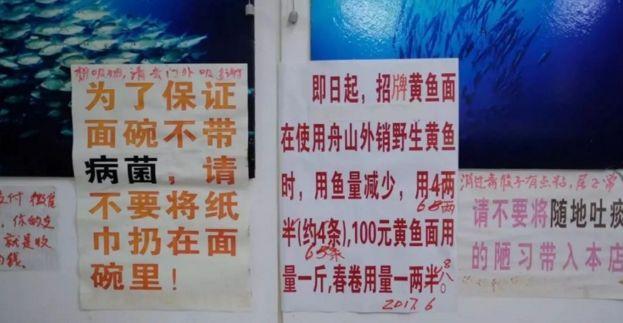 想吸烟，请去门外吸，谢谢
为了保证
面碗不带
病菌，请
不要将纸
巾扔在面
碗里！
即日起，招牌黄鱼面
在使用舟山外销野生黄鱼
时，用鱼量减少，用4两
68两
半(约4条),100元黄鱼面用
65条
量一斤,春卷用量一两半。
2017.6
请不要将随地吐痰
的陋习带入本店